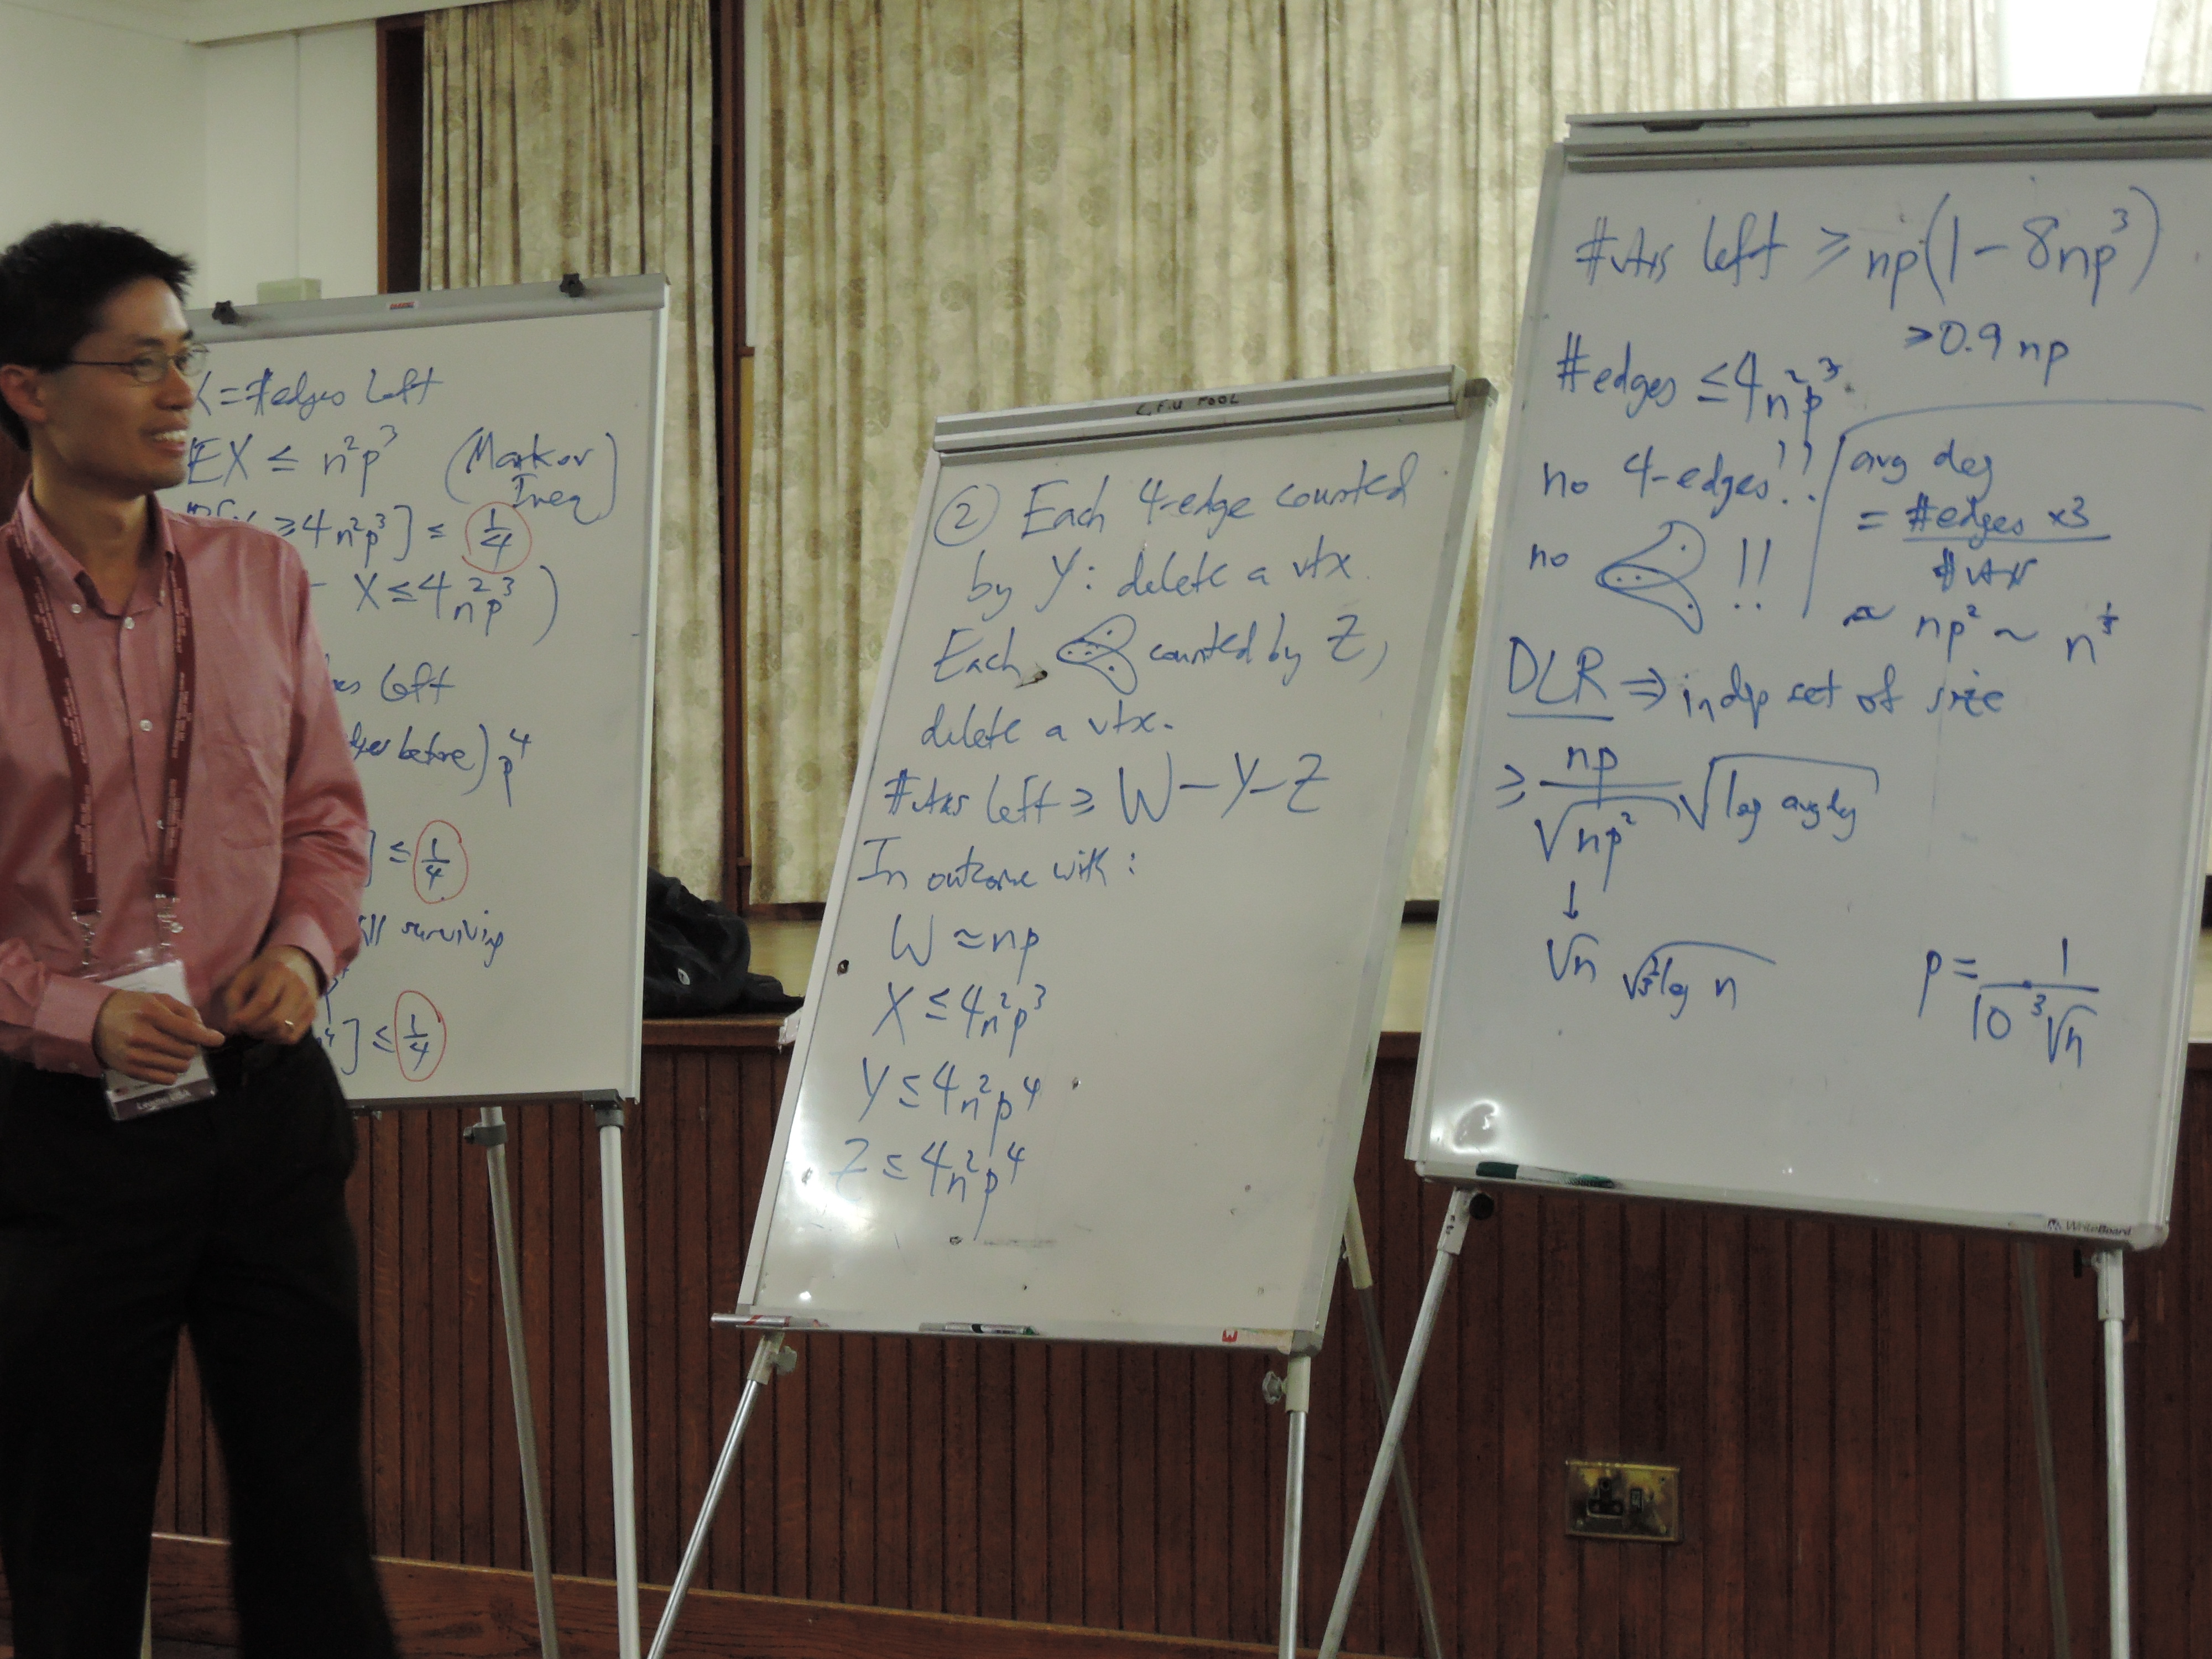 = # edges left
EX ≤ n²p³ (Markov
Ineq)
≥ 4n²p³] ≤ 1/4
X ≤ 4n²p³)
left
before) p⁴
] ≤ 1/4
surviving
⁴] ≤ 1/4
C.F.U POOL
② Each 4-edge counted
by Y: delete a vtx.
Each counted by Z,
delete a vtx.
# vtxs left ≥ W-Y-Z
In outcome with:
W ≃ np
X ≤ 4n²p³
Y ≤ 4n²p⁴
Z ≤ 4n²p⁴
# vtxs left ≥ np(1 - 8np³)
≥ 0.9 np
# edges ≤ 4n²p³
no 4-edges!!
no !!
avg deg
= # edges ×3 / # vtxs
≈ np² ~ n^⅓
DLR ⇒ indep set of size
≥ np/√np² √log avg deg
↓
√n √⅓ log n
p = 1/10 ³√n
WhiteBoard